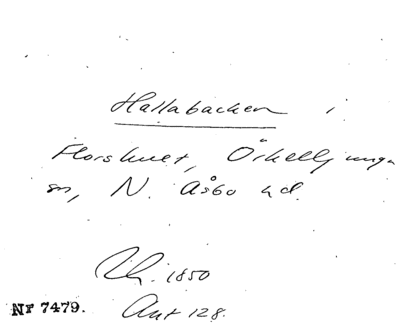 Hallabacken i
Florshult, Örkelljunga
sn, N. Åsbo hd.
1850
NF 7479.
Ant 128.